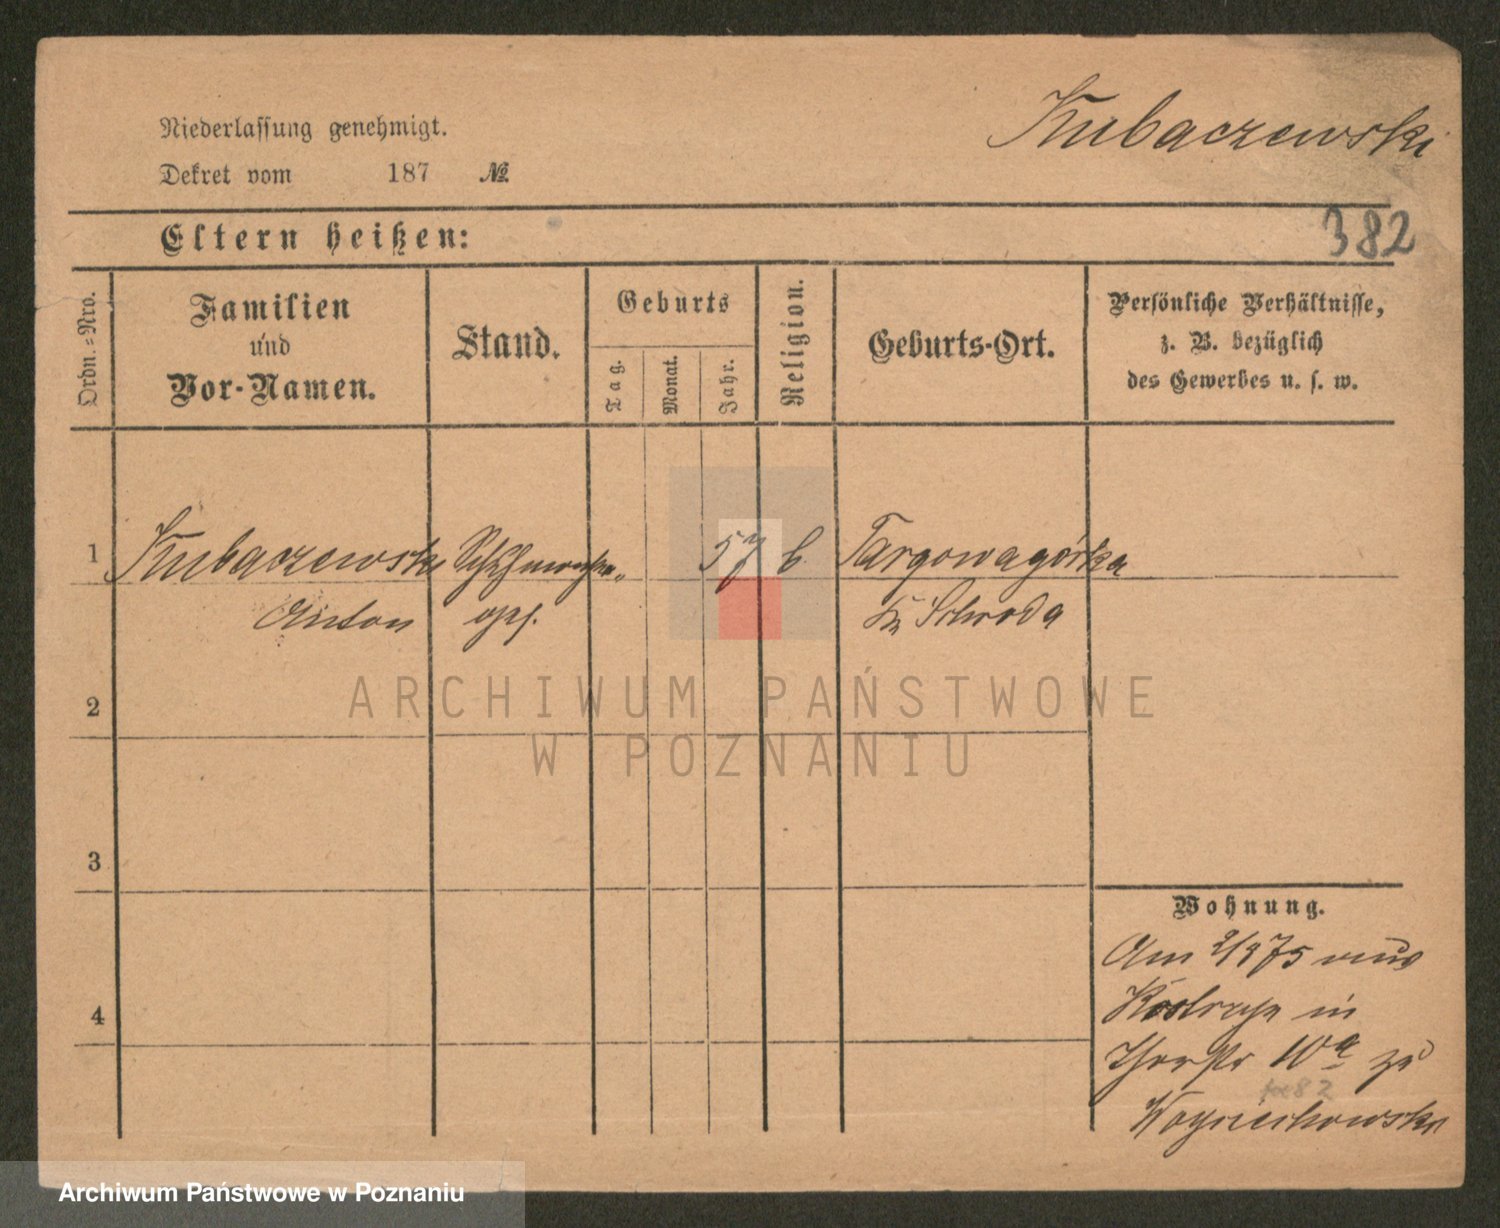 Kubaczewski
Niederlassung genehmigt.
Dekret vom 187 №
382
Eltern heißen:
Ordn.=Nro.
Familien
und
Vor-Namen.
Stand.
Geburts
Tag.
Monat.
Jahr.
Religion.
Geburts-Ort.
Persönliche Verhältnisse,
z. B. bezüglich
des Gewerbes u. s. w.
1 Kubaczewski 57 k. Targowagórka
Anton Schroda
2
3
4
Wohnung.
Am 2/9 75 aus
in
Thorstr 10a zu
Woyciechowski
ARCHIWUM PAŃSTWOWE
W POZNANIU
Archiwum Państwowe w Poznaniu